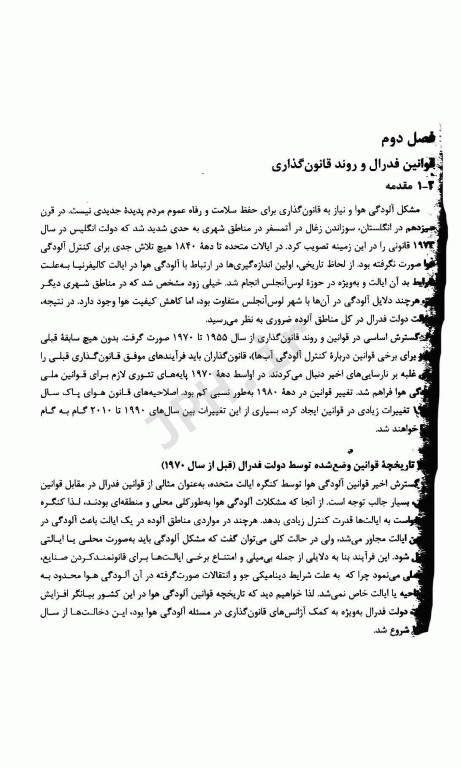 فصل دوم
قوانین فدرال و روند قانون‌گذاری
۲-۱ مقدمه
مشکل آلودگی هوا و نیاز به قانون‌گذاری برای حفظ سلامت و رفاه عموم مردم پدیدهٔ جدیدی نیست. در قرن
سیزدهم در انگلستان، سوزاندن زغال در آتمسفر در مناطق شهری به حدی شدید شد که دولت انگلیس در سال
قانونی را در این زمینه تصویب کرد. در ایالات متحده تا دههٔ ۱۸۴۰ هیچ تلاش جدی برای کنترل آلودگی
صورت نگرفته بود. از لحاظ تاریخی، اولین اندازه‌گیری‌ها در ارتباط با آلودگی هوا در ایالت کالیفرنیا به‌علت
شرایط بد آن ایالت و به‌ویژه در حوزهٔ لوس‌آنجلس انجام شد. خیلی زود مشخص شد که در مناطق شهری دیگر
هرچند دلایل آلودگی در آن‌ها با شهر لوس‌آنجلس متفاوت بود، اما کاهش کیفیت هوا وجود دارد. در نتیجه،
دولت فدرال در کل مناطق آلوده ضروری به نظر می‌رسید.
گسترش اساسی در قوانین و روند قانون‌گذاری از سال ۱۹۵۵ تا ۱۹۷۰ صورت گرفت. بدون هیچ سابقهٔ قبلی
برای برخی قوانین دربارهٔ کنترل آلودگی آب‌ها)، قانون‌گذاران باید فرآیندهای موفق قانون‌گذاری قبلی را
غلبه بر نارسایی‌های اخیر دنبال می‌کردند. در اواسط دههٔ ۱۹۷۰ پایه‌های تئوری لازم برای قوانین ملی
هوا فراهم شد. تغییر قوانین در دههٔ ۱۹۸۰ به‌طور نسبی کم بود. اصلاحیه‌های قانون هوای پاک سال
تغییرات زیادی در قوانین ایجاد کرد، بسیاری از این تغییرات بین سال‌های ۱۹۹۰ تا ۲۰۱۰ گام به گام
خواهند شد.
تاریخچهٔ قوانین وضع‌شده توسط دولت فدرال (قبل از سال ۱۹۷۰)
گسترش اخیر قوانین آلودگی هوا توسط کنگره ایالت متحده، به‌عنوان مثالی از قوانین فدرال در مقابل قوانین
بسیار جالب توجه است. از آنجا که مشکلات آلودگی هوا به‌طورکلی محلی و منطقه‌ای بودند، لذا کنگره
به ایالت‌ها قدرت کنترل زیادی بدهد. هرچند در مواردی مناطق آلوده در یک ایالت باعث آلودگی در
ایالت مجاور می‌شد، ولی در حالت کلی می‌توان گفت که مشکل آلودگی باید به‌صورت محلی یا ایالتی
شود. این فرآیند بنا به دلایلی از جمله بی‌میلی و امتناع برخی ایالت‌ها برای قانونمندکردن صنایع،
می‌نمود چرا که به علت شرایط دینامیکی جو و انتقالات صورت‌گرفته در آن آلودگی هوا محدود به
یا ایالت خاص نمی‌شد. لذا خواهیم دید که تاریخچه قوانین آلودگی هوا در این کشور بیانگر افزایش
دولت فدرال به‌ویژه به کمک آژانس‌های قانون‌گذاری در مسئله آلودگی هوا بود، این دخالت‌ها از سال
شروع شد.